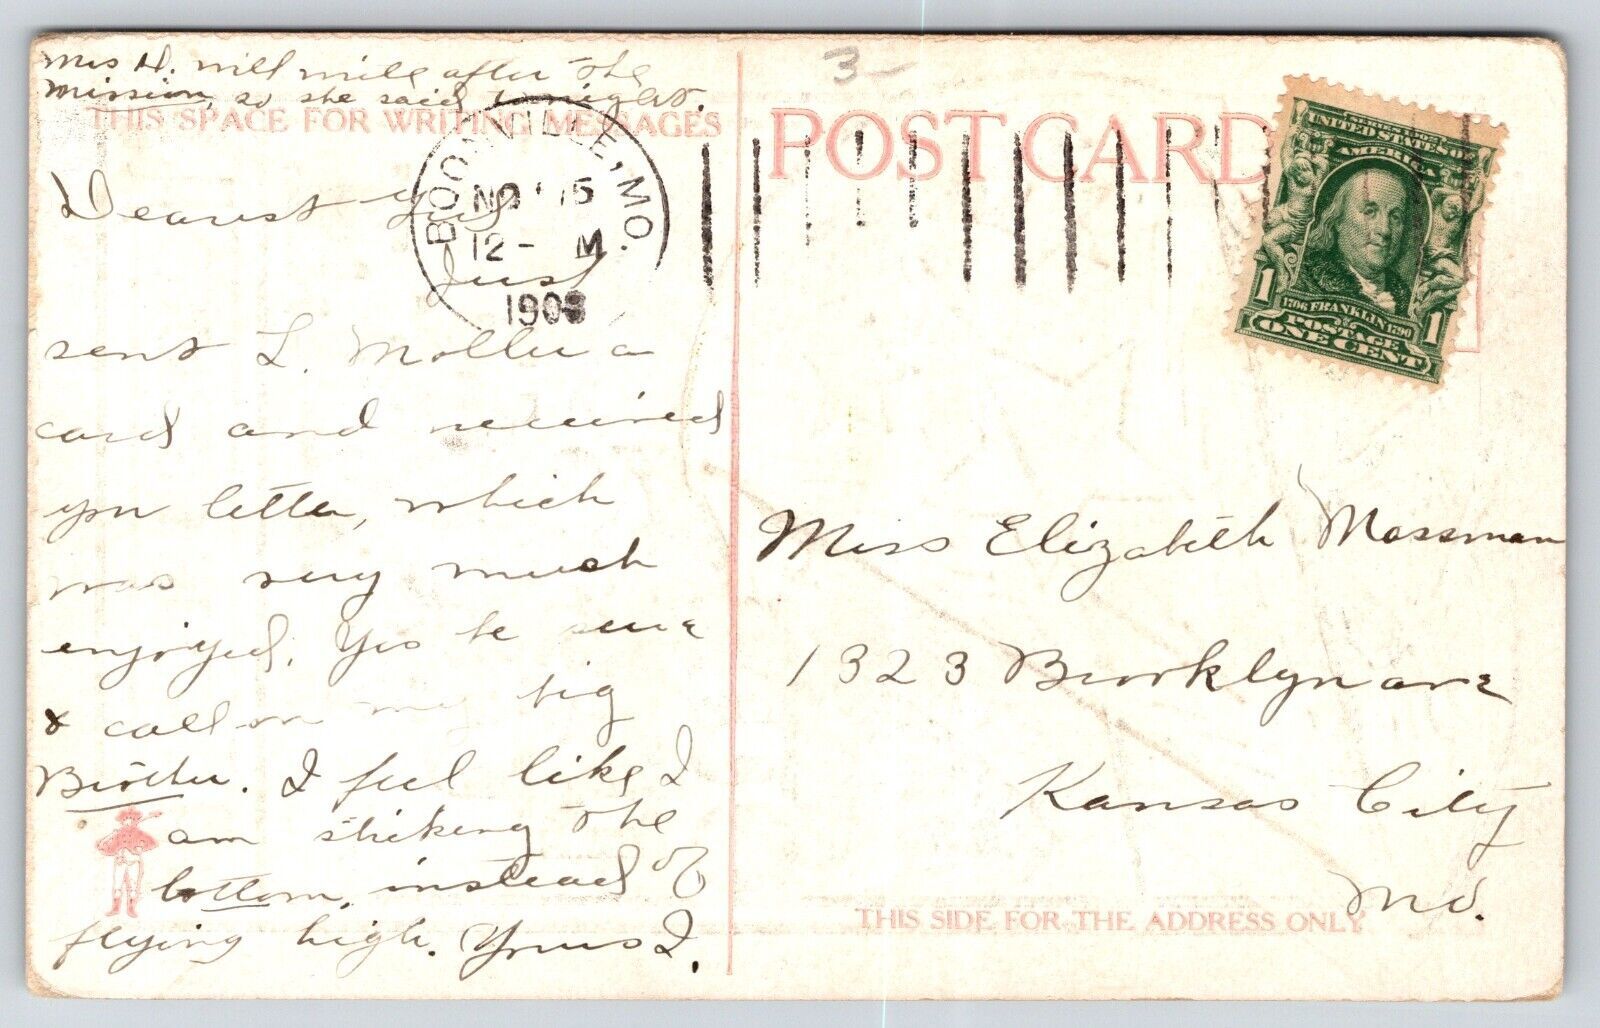 Mrs H. will
after the
Mission, so she said tonight.
THIS SPACE FOR WRITING MESSAGES
Dearest
Just
sent L. a
card and received
your letter, which
was very much
enjoyed. Yes be sure
& call on my big
Brother. I feel like I
am the
bottom, instead of
flying high. Yours I.
BOONVILLE, MO.
NOV 15
12- M
1908
3-
POST CARD
SERIES 1902
UNITED STATES OF
AMERICA
1 1
1706 FRANKLIN 1790
POSTAGE
ONE CENT
Miss Elizabeth Mossman
1323 Brooklyn ave
Kansas City
Mo.
THIS SIDE FOR THE ADDRESS ONLY